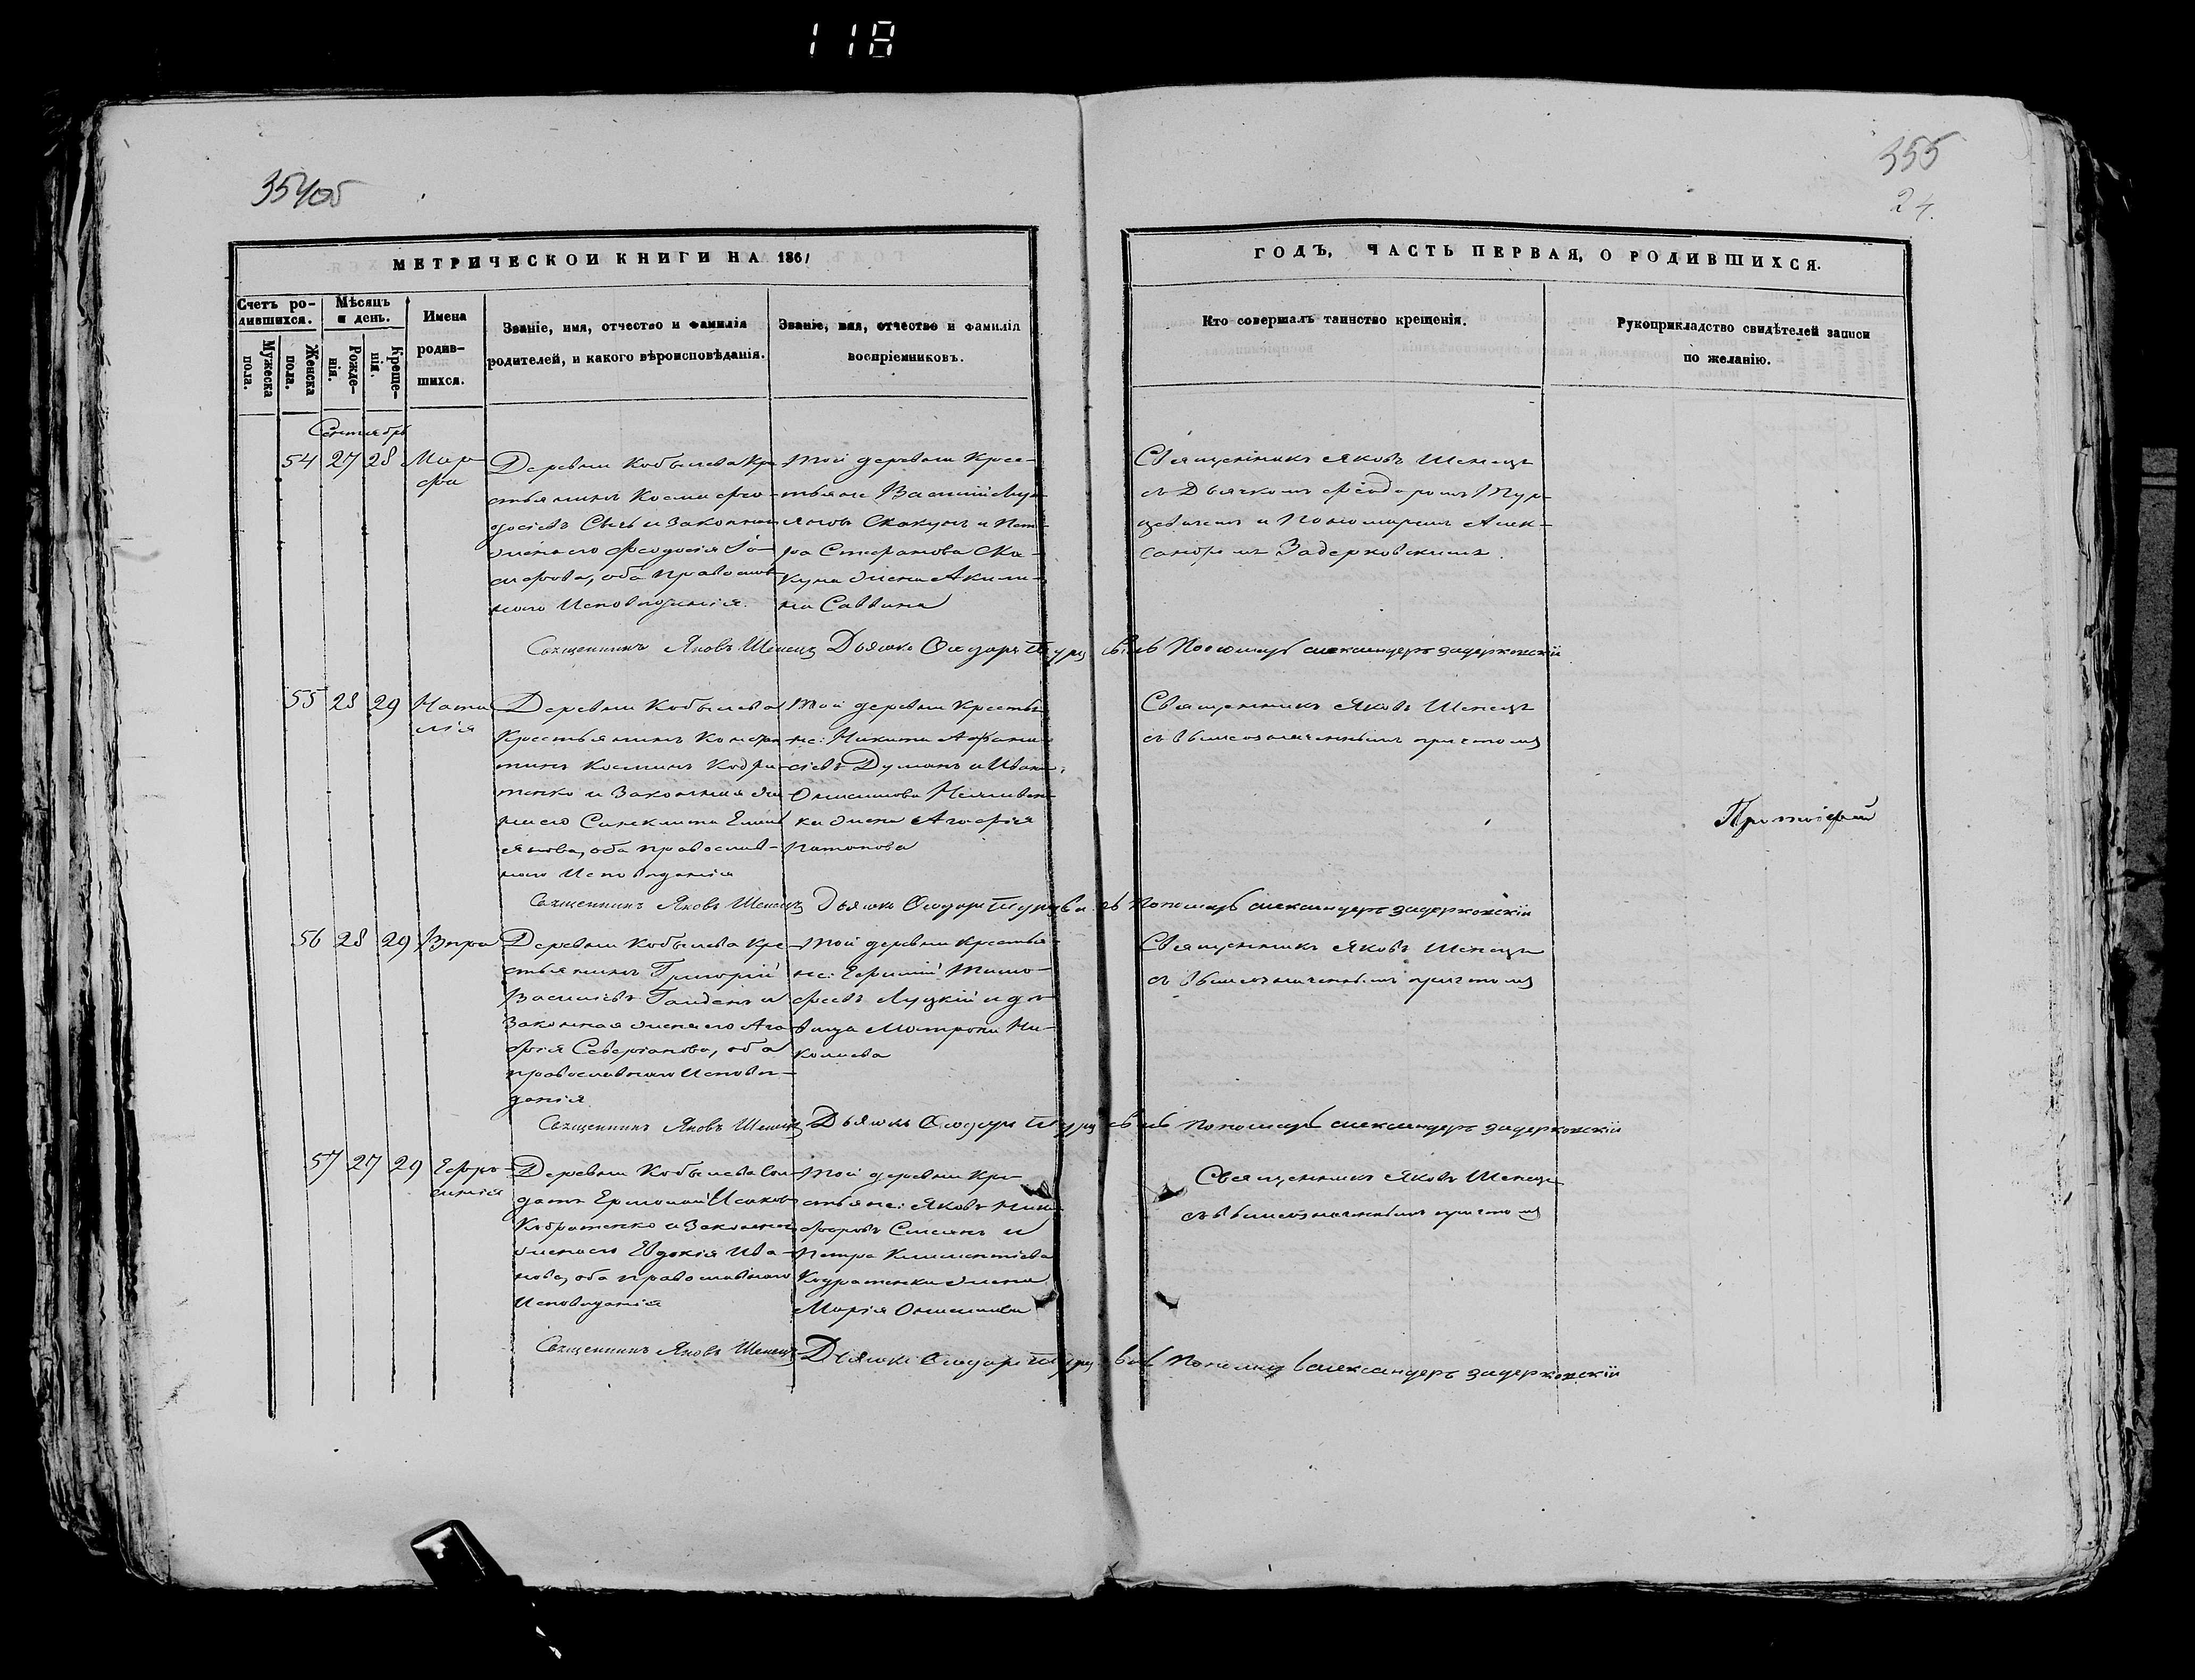 118
354об
355
24.
МЕТРИЧЕСКОЙ КНИГИ НА 1861
ГОДЪ, ЧАСТЬ ПЕРВАЯ, О РОДИВШИХСЯ.
Счетъ ро-
дившихся.
Мужеска
пола.
Женска
пола.
Мѣсяцъ
и день.
Рожде-
нія.
Креще-
нія.
Имена
родив-
шихся.
Званіе, имя, отчество и фамилія
родителей, и какого вѣроисповѣданія.
Званіе, имя, отчество и фамилія
воспріемниковъ.
Кто совершалъ таинство крещенія.
Рукоприкладство свидѣтелей записи
по желанію.
Сентябрь
54 27 28
Мар-
фа
Деревни Кобылева Кре
стьянинъ Косма Фео-
досіевъ и законная
жена его Феодосія
оба православ
наго Исповѣданія.
Той деревни Крес-
тьяне Василій
Скакунъ и Пет-
ра Стефанова Ска-
куна жена Акили-
на Саввина
Священникъ Яковъ Шенецъ
съ Дьячкомъ Феодоромъ Тур-
цевичемъ и Пономаремъ Алек-
сандромъ Задерковскимъ.
Священникъ Яковъ Шенецъ Дьячокъ Феодоръ Турцевичъ Пономарь Александеръ Задерковскій
55 28 29
Ната
лія
Деревни Кобылева
Крестьянинъ Конста
тинъ Косминъ
и Законная же
на его Синклита Емил
янова, оба православ-
наго Исповѣданія
Той деревни Крестья
не: Никита Афана-
сіевъ Думанъ и Ивана
Онисимова
жена Агафія
Потапова
Священникъ Яковъ Шенецъ
съ вышеозначеннымъ причтомъ
Протоіерей
Священникъ Яковъ Шенецъ Дьячокъ Феодоръ Турцевичъ Пономарь Александеръ Задерковскій
56 28 29
Деревни Кобылева Кре-
стьянинъ Григорій
Василіевъ Гайденъ и
Законная жена его Ага
фія Северіанова, оба
православнаго Исповѣ-
данія
Той деревни Крестья-
не: Ефимій Тимо-
феевъ Луцкій и дѣ-
вица Матрона Ни-
колаева
Священникъ Яковъ Шенецъ
съ вышеозначеннымъ причтомъ
Священникъ Яковъ Шенецъ Дьячокъ Феодоръ Турцевичъ Пономарь Александеръ Задерковскій
57 27 29
Ефро-
синія
Деревни Кобылева Сол-
датъ Ермолай Исаков
и Законная
жена его Евдокія Ива-
нова, оба православнаго
Исповѣданія
Той деревни Кре-
стьяне: Яковъ Ники-
форовъ и
Петра Климентіева
жена
Марія Онисимова
Священникъ Яковъ Шенецъ
съ вышеозначеннымъ причтомъ
Священникъ Яковъ Шенецъ Дьячокъ Феодоръ Турцевичъ Пономарь Александеръ Задерковскій